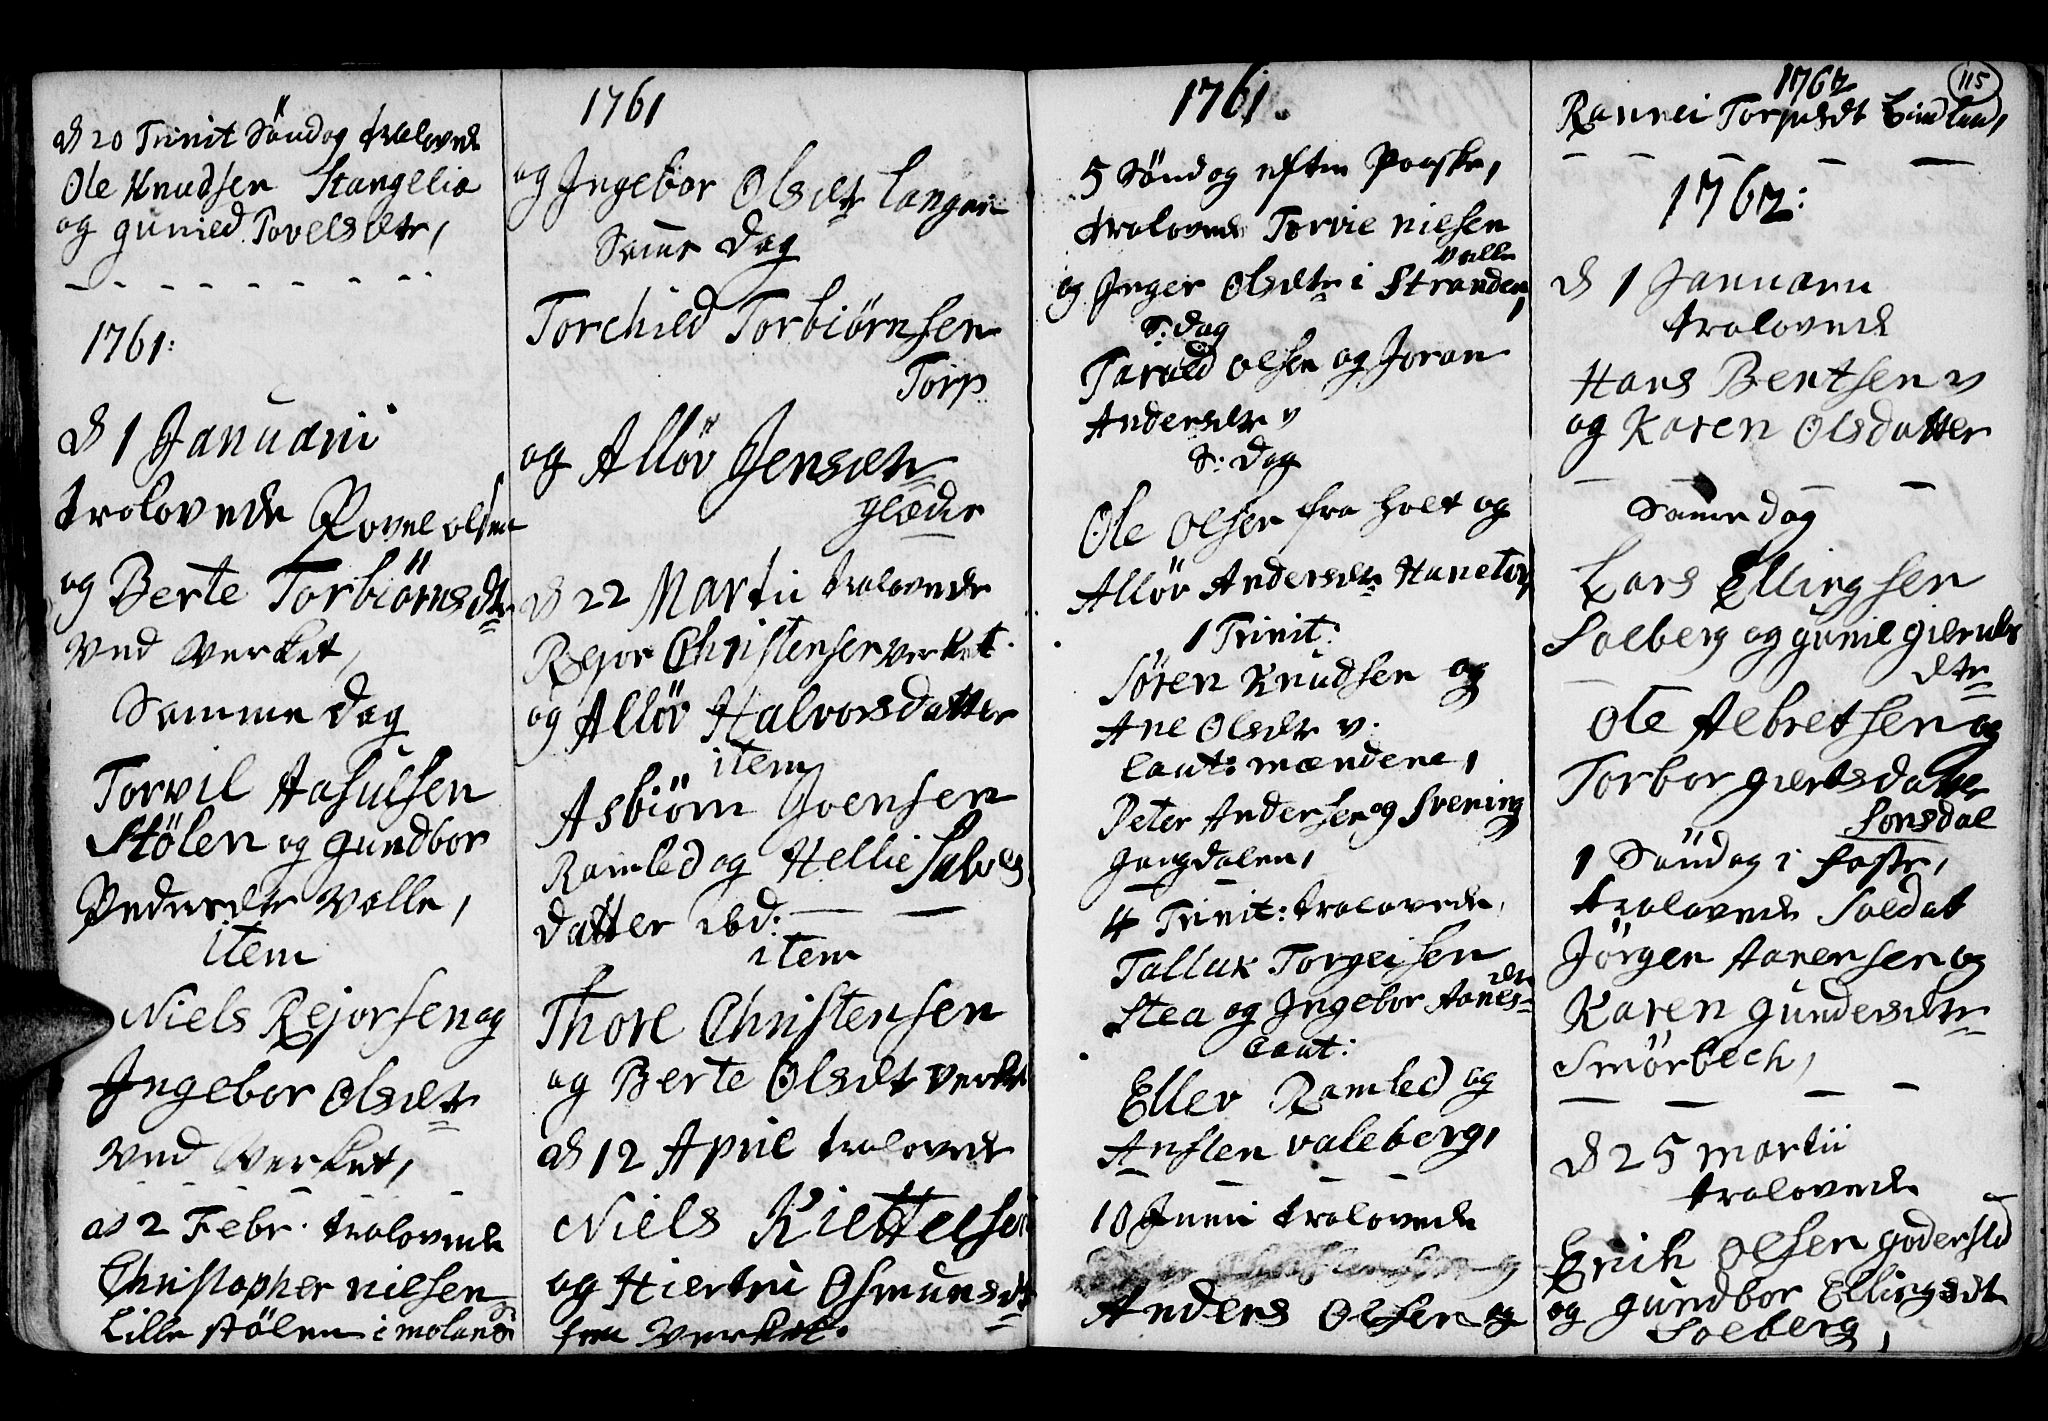 D 20 Trinit Söndag trolovede
Ole Knudsen Stangelia
og gunild Povelsdtr,
1761:
D 1 Januarii
trolovede Povel olsen
og Berte Torbiörnsdtr
Ved Verket,
Samme dag
Torvil Aasulsen
Stölen og gundbor
Pedersdtr Valle,
item
Niels Rejorsen og
Ingebor Olsdtr
Ved Verket,
D 2 Febr. trolovede
Christopher nielsen
Lille stölen i moland
1761
og Ingebor Olsdtr Langan
Same Dag
Torchild Torbiörnsen
Torp
og Allöv Jensdtr
glædie
D 22 Martii trolovede
Rejor Christensen verket
og Allöv Halvorsdatter
item
Asbiörn Joensen
Ramled og Hellie Salves
datter ibd:
item
Thore Christensen
og Berte Olsdtr verket
D 12 April trolovede
Niels Kiettelsen
og Hiertru Osmunsdt
fra Verket.
1761.
5 Söndag efter Paaske,
trolovede Torvie nielsen
Valle
og Inger Olsdtr i Stranden,
S: dag
Tarald olsen og Joran
Andersdtr v
S: dag
Ole Olsen fra Holt og
Allöv Andersdtr Hanetor
1 Trinit:
Sören Knudsen og
Ane Olsdtr v.
Caut: mændene,
Peter Andersen og Svening
Jangdalen,
4 Trinit: trolovede,
Talluk Torgeisen
dtr
Stea og Ingebor Aanes-
Caut:
Ellev Ramled og
Austen valeberg,
10 Junii trolovede
Anders Olsen og
1762
115
Rannei Torjusdt Lindland,
1762:
D 1 Januarii
trolovede
Hans Bentsen v
og Karen Olsdatter
Same dag
Lars Ellingsen
Solberg og gunil gieruls
dtr
Ole Aebretsen og
Torbor giertsdatter
Sonsdal
1 Söndag i faste,
trolovede Soldat
Jörgen Aanensen og
Karen gundersdtr
Smörbech,
D 25 martii
trolovede
Erich Olsen goderstad
og gundbor Ellingsdt
Solberg,